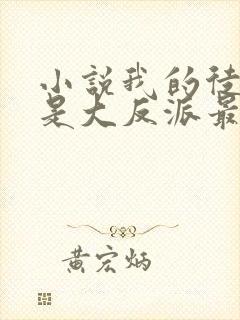 小說我的徒
是大反派最
黄宏炳